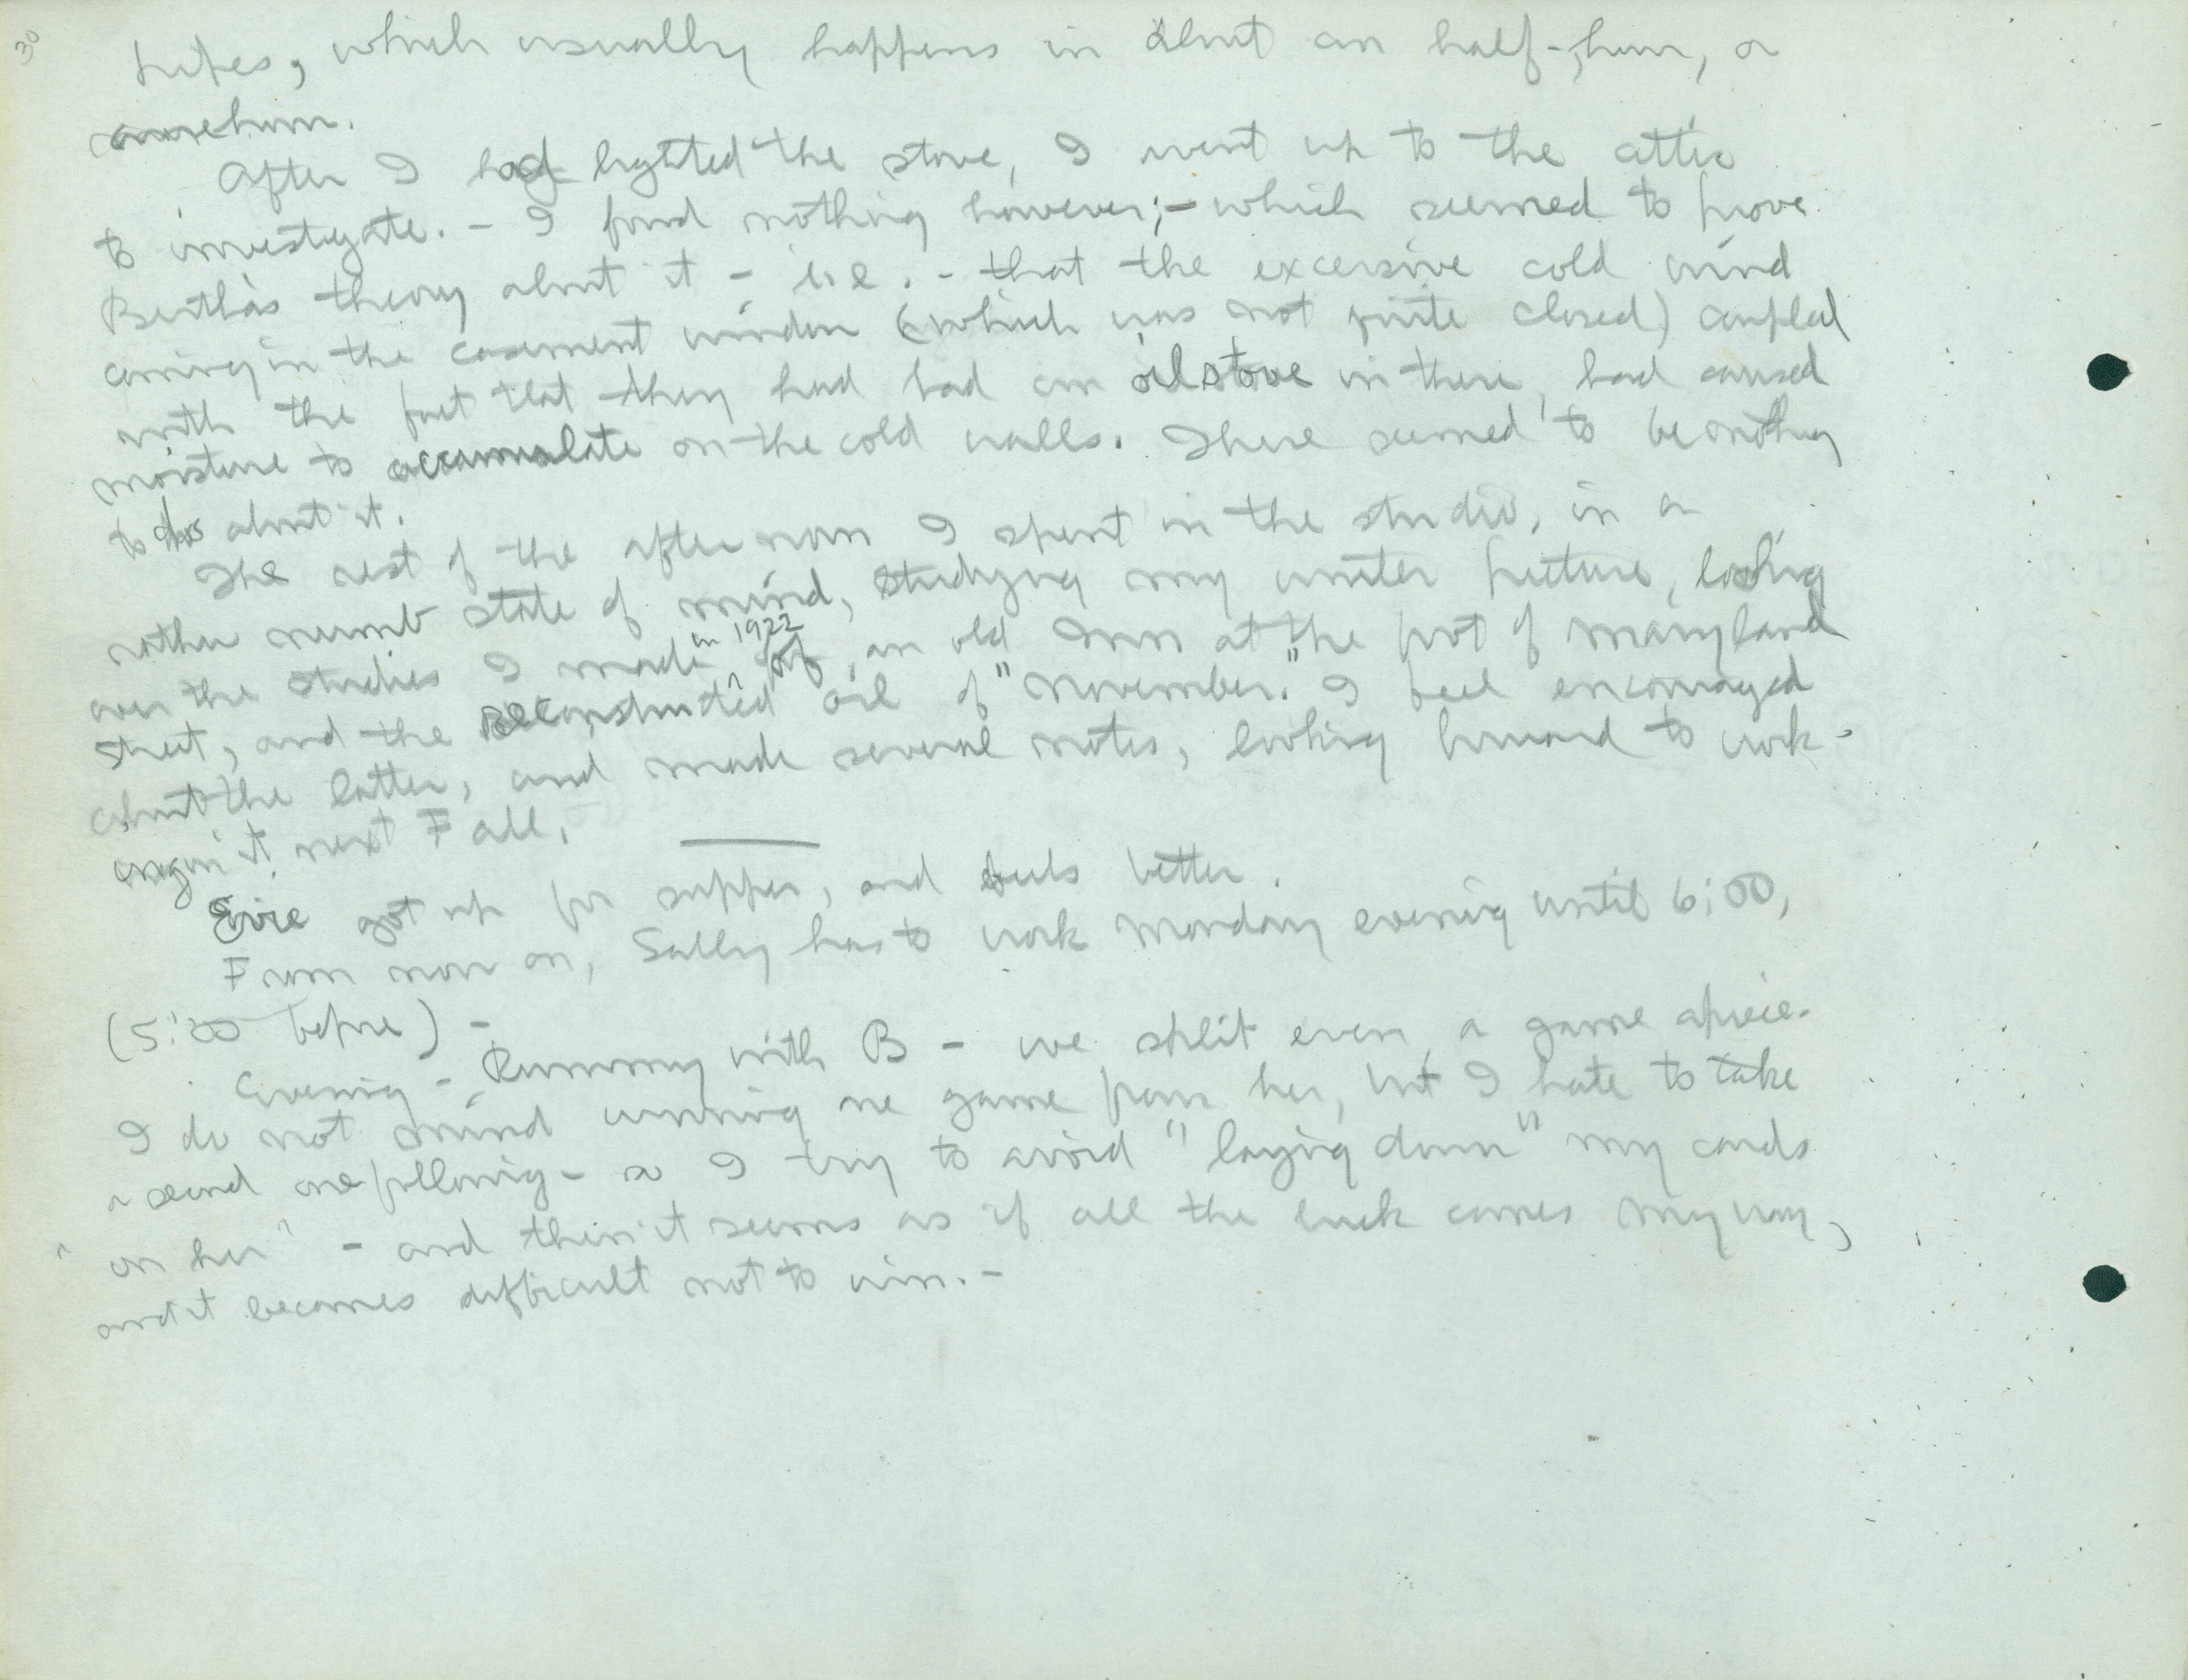 30
pipes, which usually happens in about an half-hour, or
an hour.
After I had lighted the stove, I went up to the attic
to investigate. - I found nothing however; - which seemed to prove
Bertha's theory about it - i.e. - that the excessive cold wind
coming in the casement window (which was not quite closed) coupled
with the fact that they had had an oil stove in there, had caused
moisture to accumulate on the cold walls. There seemed to be nothing
to do about it.
The rest of the afternoon I spent in the studio, in a
rather numb state of mind, studying my winter picture, looking
over the studies I made in 1922 of an old Inn at the foot of Maryland
Street, and the reconstructed oil of "November." I feel encouraged
about the latter, and made several notes, looking forward to work-
ing on it next Fall.
Evie got up for supper, and feels better.
From now on, Sally has to work Monday evening until 6:00,
(5:00 before) -
Evening - Rummy with B - we split even, a game apiece.
I do not mind winning one game from her, but I hate to take
a second one following - so I try to avoid "laying down" my cards
"on her" - and then it seems as if all the luck comes my way,
and it becomes difficult not to win. -